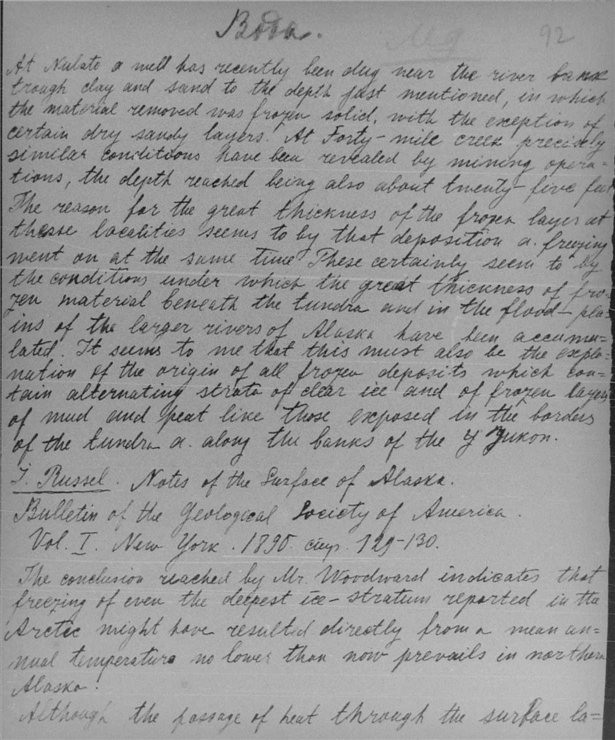 Вода.
92
At Nulato a well has recently been dug near the river bank
trough clay and sand to the depth just mentioned, in which
the material removed was frozen solid, with the exception of
certain dry sandy layers. At Forty-mile creek precisely
similar conditions have been revealed by mining opera-
tions, the depth reached being also about twenty-five feet
The reason for the great thickness of the frozen layer at
these localities seems to by that deposition a. freezing
went on at the same time These certainly seem to by
the conditions under which the great thickness of fro-
zen material beneath the tundra and in the flood-pla-
ins of the larger rivers of Alaska have been accumu-
lated. It seems to me that this must also be the expla-
nation of the origin of all frozen deposits which con-
tain alternating strata of clear ice and of frozen layers
of mud and peat like those exposed in the borders
of the tundra a. along the banks of the Y Yukon.
I. Russel. Notes of the Surface of Alaska.
Bulletin of the Geological Society of America.
Vol. I. New York. 1890. стр. 129-130.
The conclusion reached by Mr. Woodward indicates that
freezing of even the deepest ice-stratum reported in the
Arctic might have resulted directly from a mean an-
nual temperature no lower than now prevails in northern
Alaska.
Although the passage of heat through the surface la=